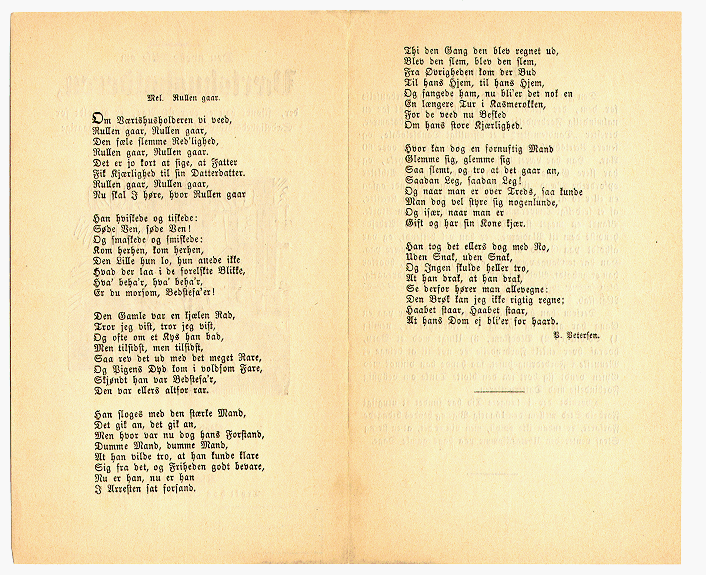 Mel. Rullen gaar.
Om Værtshusholderen vi veed,
Rullen gaar, Rullen gaar,
Den fæle slemme Red'lighed,
Rullen gaar, Rullen gaar.
Det er jo kort at sige, at Fatter
Fik Kjærlighed til sin Datterdatter.
Rullen gaar, Rullen gaar,
Nu skal I høre, hvor Rullen gaar
Han hviskede og tiskede:
Søde Ven, søde Ven!
Og smaskede og smiskede:
Kom herhen, kom herhen,
Den Lille hun lo, hun anede ikke
Hvad der laa i de forelskte Blikke,
Hva' beha'r, hva' beha'r,
Er du morsom, Bedstefa'er!
Den Gamle var en kjælen Rad,
Tror jeg vist, tror jeg vist,
Og ofte om et Kys han bad,
Men tilsidst, men tilsidst,
Saa rev det ud med det meget Rare,
Og Pigens Dyd kom i voldsom Fare,
Skjøndt han var Bedstefa'r,
Den var ellers altfor rar.
Han sloges med den stærke Mand,
Det gik an, det gik an,
Men hvor var nu dog hans Forstand,
Dumme Mand, dumme Mand,
At han vilde tro, at han kunde klare
Sig fra det, og Friheden godt bevare,
Nu er han, nu er han
I Arresten sat forsand.
Thi den Gang den blev regnet ud,
Blev den slem, blev den slem,
Fra Øvrigheden kom der Bud
Til hans Hjem, til hans Hjem,
Og fangede ham, nu bli'er det nok en
En længere Tur i Kasmerokken,
For de veed nu Besked
Om hans store Kjærlighed.
Hvor kan dog en fornuftig Mand
Glemme sig, glemme sig
Saa slemt, og tro at det gaar an,
Saadan Leg, saadan Leg!
Og naar man er over Treds, saa kunde
Man dog vel styre sig nogenlunde,
Og især, naar man er
Gift og har sin Kone kjær.
Han tog det ellers dog med Ro,
Uden Snak, uden Snak,
Og Ingen skulde heller tro,
At han drak, at han drak,
Se derfor hører man allevegne:
Den Brøk kan jeg ikke rigtig regne;
Haabet staar, Haabet staar,
At hans Dom ej bli'er for haard.
P. Petersen.